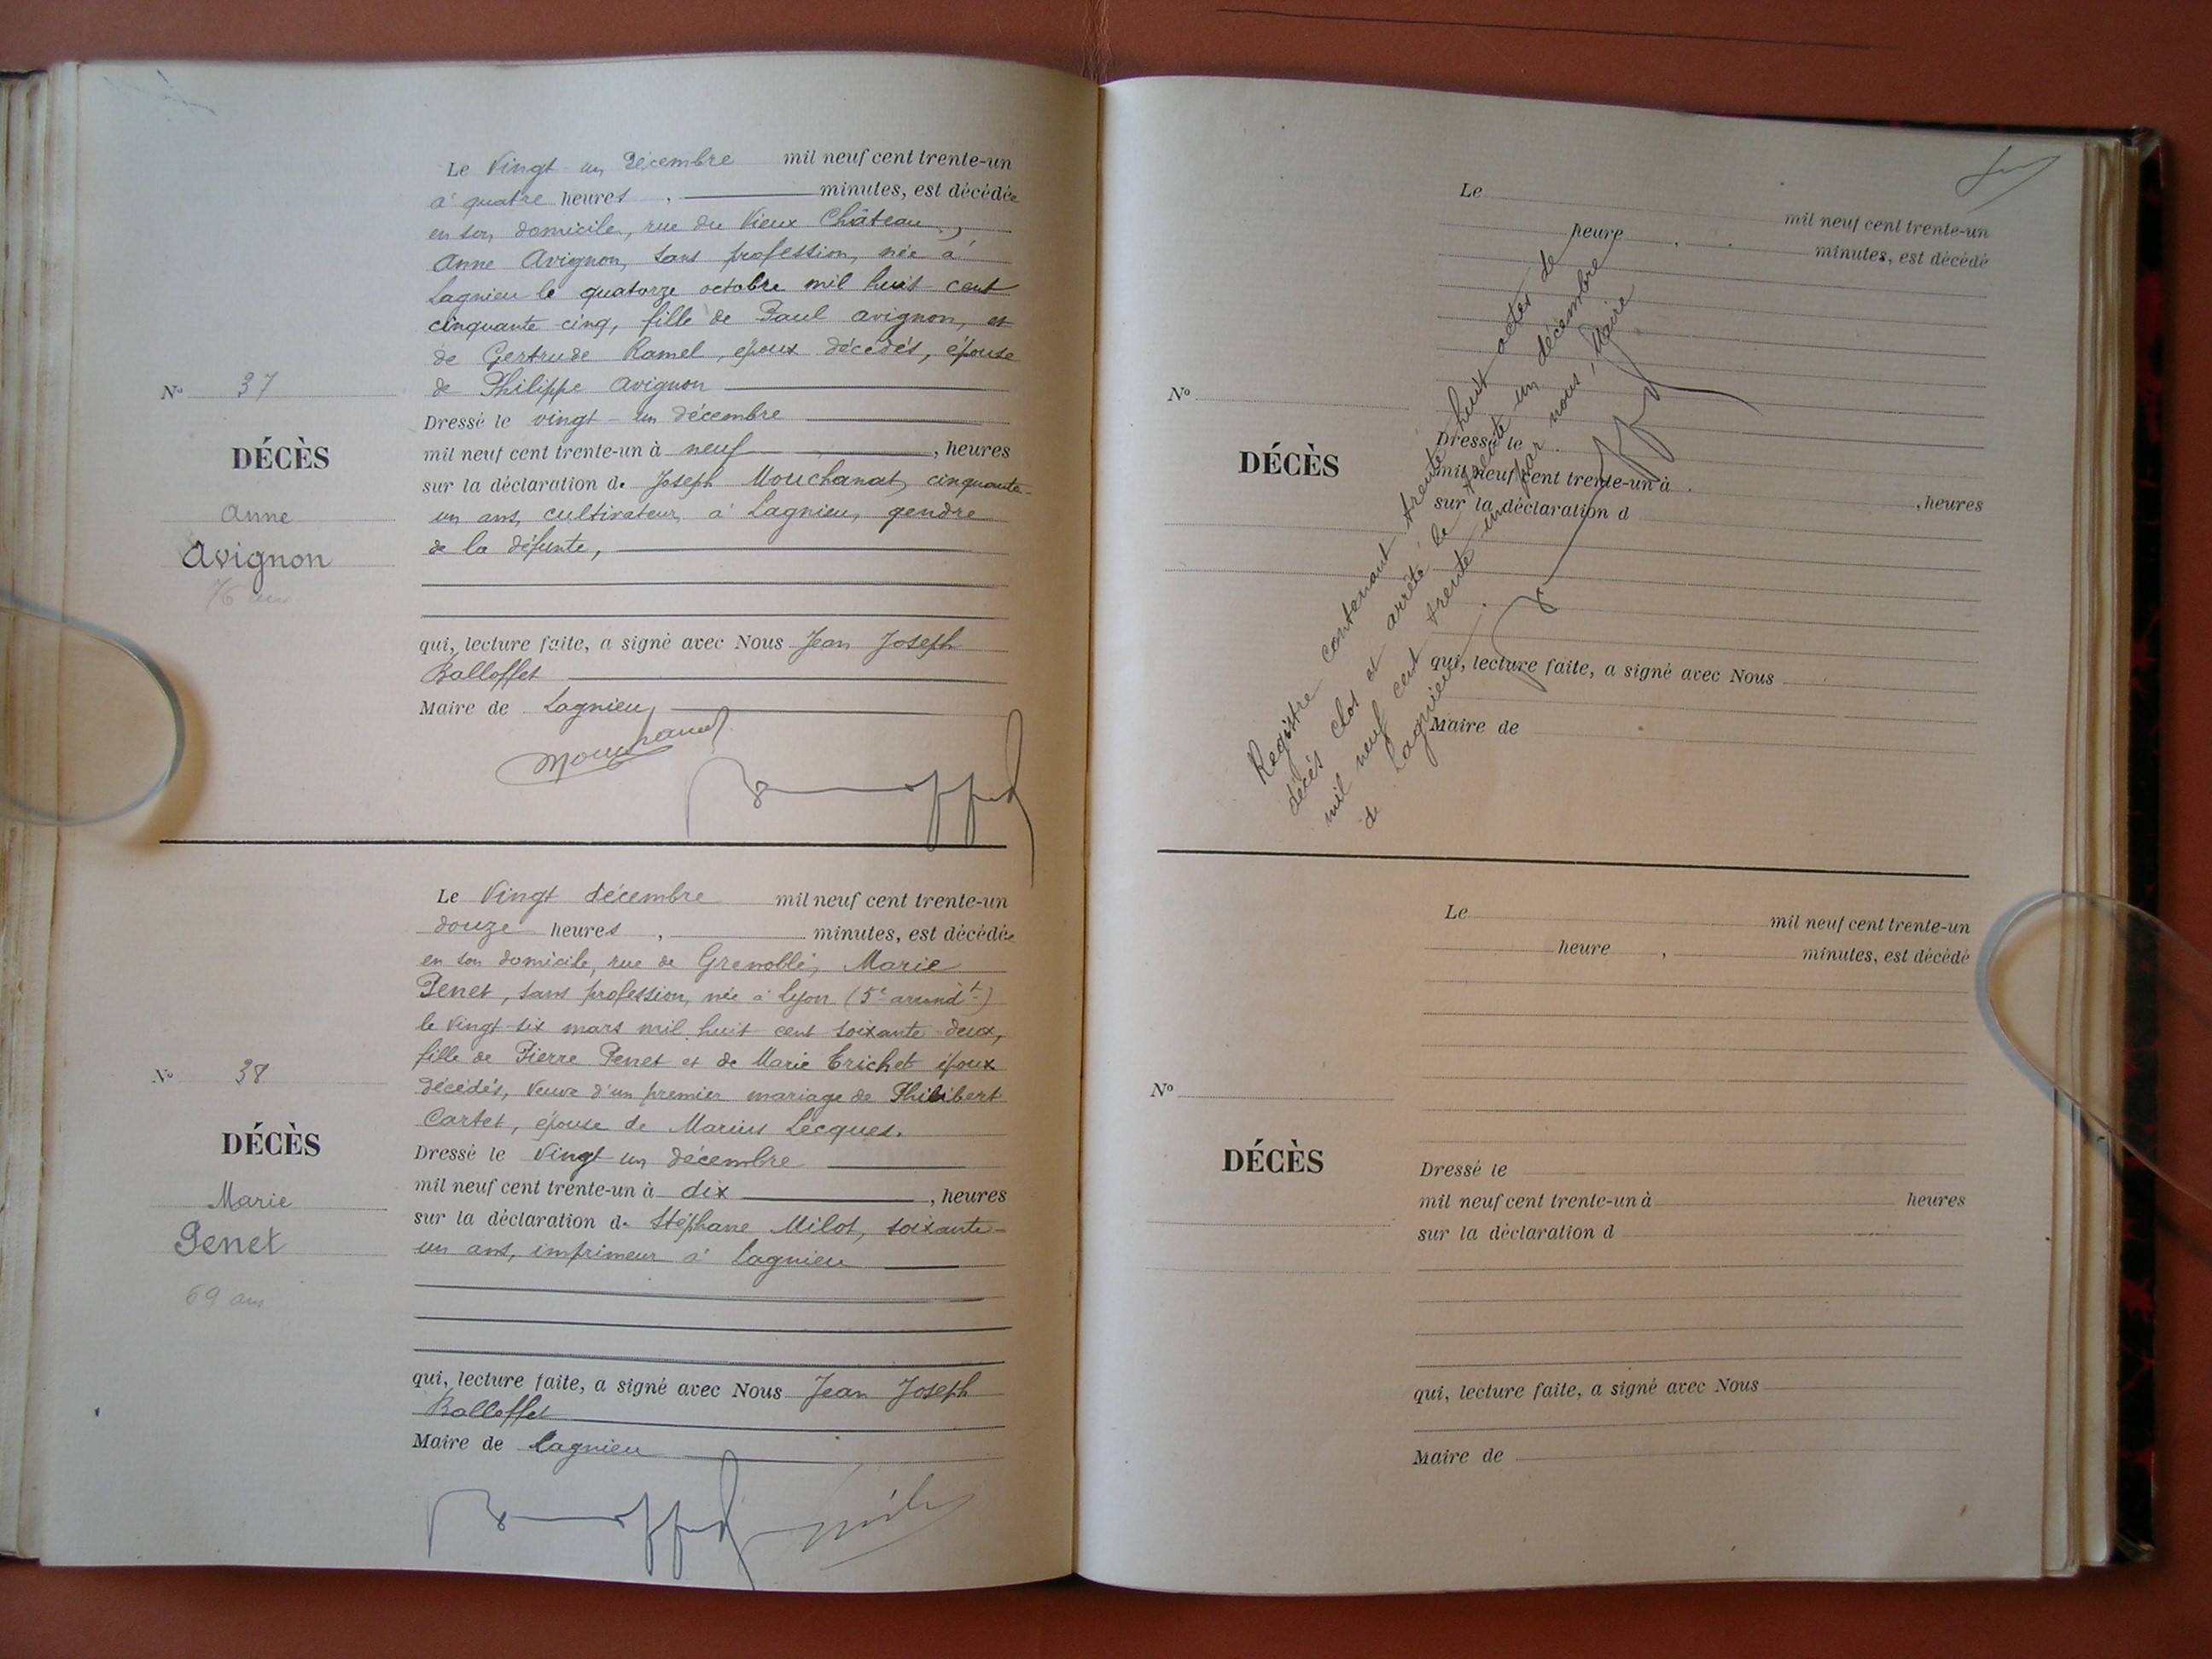 Le Vingt-un Décembre mil neuf cent trente-un
à quatre heures , minutes, est décédée
en son domicile, rue du Vieux Château,
Anne Avignon, sans profession, née à
Lagnieu le quatorze octobre mil huit cent
cinquante cinq, fille de Paul Avignon, et
de Gertrude Ramel, époux décédés, épouse
de Philippe Avignon
Nº 37
DÉCÈS
Anne
Avignon
76 ans
Dressé le vingt-un décembre
mil neuf cent trente-un à neuf , heures
sur la déclaration de Joseph Mouchanat, cinquante-
un ans, cultivateur, à Lagnieu, gendre
de la défunte,
qui, lecture faite, a signé avec Nous Jean Joseph
Balloffet
Maire de Lagnieu,
Le Vingt décembre mil neuf cent trente-un
douze heures , minutes, est décédée
en son domicile, rue de Grenoble, Marie
Penet, sans profession, née à Lyon (5e arrondt)
le vingt six mars mil huit cent soixante-deux,
fille de Pierre Penet et de Marie Trichet époux
décédés, veuve d'un premier mariage de Philibert
Cartet, épouse de Marius Lecques.
Nº 38
DÉCÈS
Marie
Penet
69 ans
Dressé le Vingt un décembre
mil neuf cent trente-un à dix , heures
sur la déclaration de Stéphane Milot, soixante-
un ans, imprimeur à Lagnieu
qui, lecture faite, a signé avec Nous Jean Joseph
Balloffet
Maire de Lagnieu
Le mil neuf cent trente-un
heure , minutes, est décédé
Nº
DÉCÈS
Dressé le
mil neuf cent trente-un à , heures
sur la déclaration d
qui, lecture faite, a signé avec Nous
Maire de
Registre contenant trente huit actes de
décès clos et arrêté le trente un décembre
mil neuf cent trente un par nous, Maire
de Lagnieu
Le mil neuf cent trente-un
heure , minutes, est décédé
Nº
DÉCÈS
Dressé le
mil neuf cent trente-un à heures
sur la déclaration d
qui, lecture faite, a signé avec Nous
Maire de